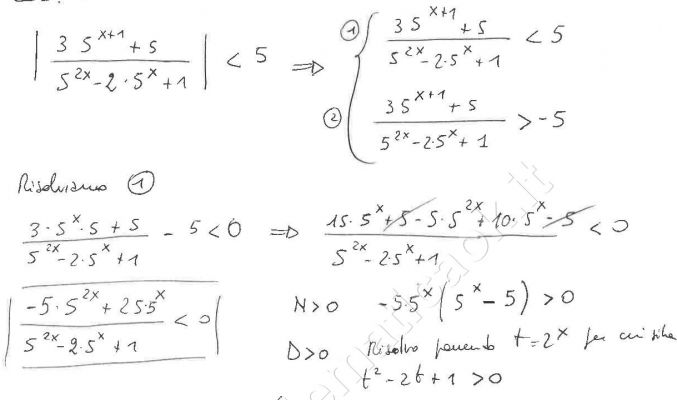 | (3 5^(x+1) + 5) / (5^(2x) - 2·5^x + 1) | < 5 ⇒ ① { (3 5^(x+1) + 5) / (5^(2x) - 2·5^x + 1) < 5
② (3 5^(x+1) + 5) / (5^(2x) - 2·5^x + 1) > -5
Risolviamo ①
(3·5^x·5 + 5) / (5^(2x) - 2·5^x + 1) - 5 < 0 ⇒ (15·5^x + 5 - 5·5^(2x) + 10·5^x - 5) / (5^(2x) - 2·5^x + 1) < 0
| (-5·5^(2x) + 25·5^x) / (5^(2x) - 2·5^x + 1) < 0 |
N>0 -5·5^x (5^x - 5) > 0
D>0 Risolvo ponendo t = 2^x per cui si ha
t² - 2t + 1 > 0